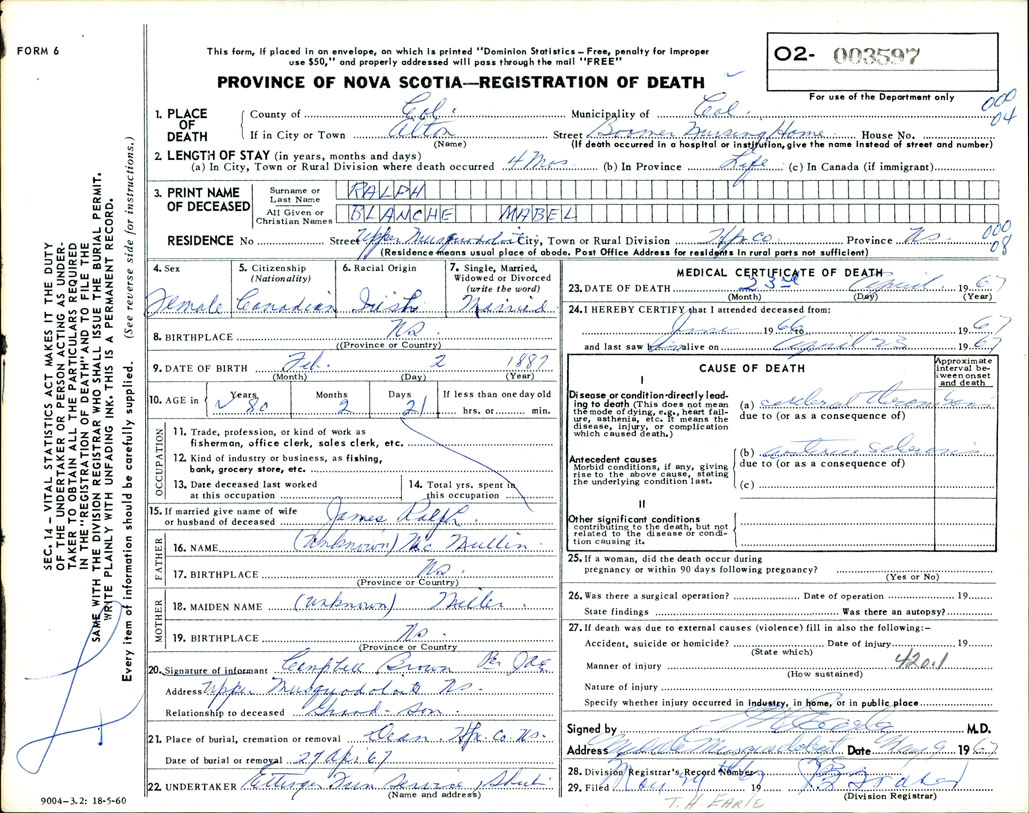 FORM 6
This form, if placed in an envelope, on which is printed "Dominion Statistics – Free, penalty for improper
use $50," and properly addressed will pass through the mail "FREE"
PROVINCE OF NOVA SCOTIA—REGISTRATION OF DEATH
02- 003597
For use of the Department only
1. PLACE OF DEATH County of Col. Municipality of Col. 000 04
If in City or Town Alton Street Boomer Nursing Home House No.
(Name) (If death occurred in a hospital or institution, give the name instead of street and number)
2. LENGTH OF STAY (in years, months and days)
(a) In City, Town or Rural Division where death occurred 4 Mos. (b) In Province Life (c) In Canada (if immigrant)
3. PRINT NAME OF DECEASED Surname or Last Name RALPH
All Given or Christian Names BLANCHE MABEL
RESIDENCE No Street Upper Musquodoboit City, Town or Rural Division Hfx Co Province NS. 000 08
(Residence means usual place of abode. Post Office Address for residents in rural parts not sufficient)
4. Sex Female
5. Citizenship (Nationality) Canadian
6. Racial Origin Irish
7. Single, Married, Widowed or Divorced (write the word) Married
8. BIRTHPLACE NS.
((Province or Country)
9. DATE OF BIRTH Feb. 2 1887
(Month) (Day) (Year)
10. AGE in Years 80 Months 2 Days 21 If less than one day old hrs. or min.
OCCUPATION
11. Trade, profession, or kind of work as
fisherman, office clerk, sales clerk, etc.
12. Kind of industry or business, as fishing,
bank, grocery store, etc.
13. Date deceased last worked
at this occupation
14. Total yrs. spent in
this occupation
15. If married give name of wife
or husband of deceased James Ralph
FATHER
16. NAME (Unknown) McMullin
17. BIRTHPLACE NS.
(Province or Country)
MOTHER
18. MAIDEN NAME (unknown) Miller
19. BIRTHPLACE NS.
(Province or Country
20. Signature of informant Campbell Brown Per
Address Upper Musquodoboit NS.
Relationship to deceased Grand-son
21. Place of burial, cremation or removal Dean Hfx. Co. NS.
Date of burial or removal 27 Apr. 67
22. UNDERTAKER Ettinger Fun Service
(Name and address)
9004–3.2: 18-5-60
MEDICAL CERTIFICATE OF DEATH
23. DATE OF DEATH 23rd April 1967
(Month) (Day) (Year)
24. I HEREBY CERTIFY that I attended deceased from:
June 1966 to 1967
and last saw him alive on April 23 1967
CAUSE OF DEATH
Approximate interval between onset and death
I
Disease or condition-directly leading to death (This does not mean the mode of dying, e.g., heart failure, asthenia, etc. It means the disease, injury, or complication which caused death.)
(a) cerebral thrombosis
due to (or as a consequence of)
Antecedent causes
Morbid conditions, if any, giving rise to the above cause, stating the underlying condition last.
(b) arterio sclerosis
due to (or as a consequence of)
(c)
II
Other significant conditions
contributing to the death, but not related to the disease or condition causing it.
25. If a woman, did the death occur during
pregnancy or within 90 days following pregnancy?
(Yes or No)
26. Was there a surgical operation? Date of operation 19
State findings Was there an autopsy?
27. If death was due to external causes (violence) fill in also the following:–
Accident, suicide or homicide? Date of injury 19
(State which)
Manner of injury 420.1
(How sustained)
Nature of injury
Specify whether injury occurred in Industry, in home, or in public place
Signed by M.D.
Address Middle Musquodoboit Date May 9 1967
28. Division Registrar's Record Number
29. Filed May 29 1967
(Division Registrar)
T. H. EARLE
SEC. 14 – VITAL STATISTICS ACT MAKES IT THE DUTY
OF THE UNDERTAKER OR PERSON ACTING AS UNDER-
TAKER TO OBTAIN ALL THE PARTICULARS REQUIRED
IN THE "REGISTRATION OF DEATH" AND TO FILE THE
SAME WITH THE DIVISION REGISTRAR WHO SHALL ISSUE THE BURIAL PERMIT.
WRITE PLAINLY WITH UNFADING INK. THIS IS A PERMANENT RECORD.
Every item of information should be carefully supplied. (See reverse side for instructions.)